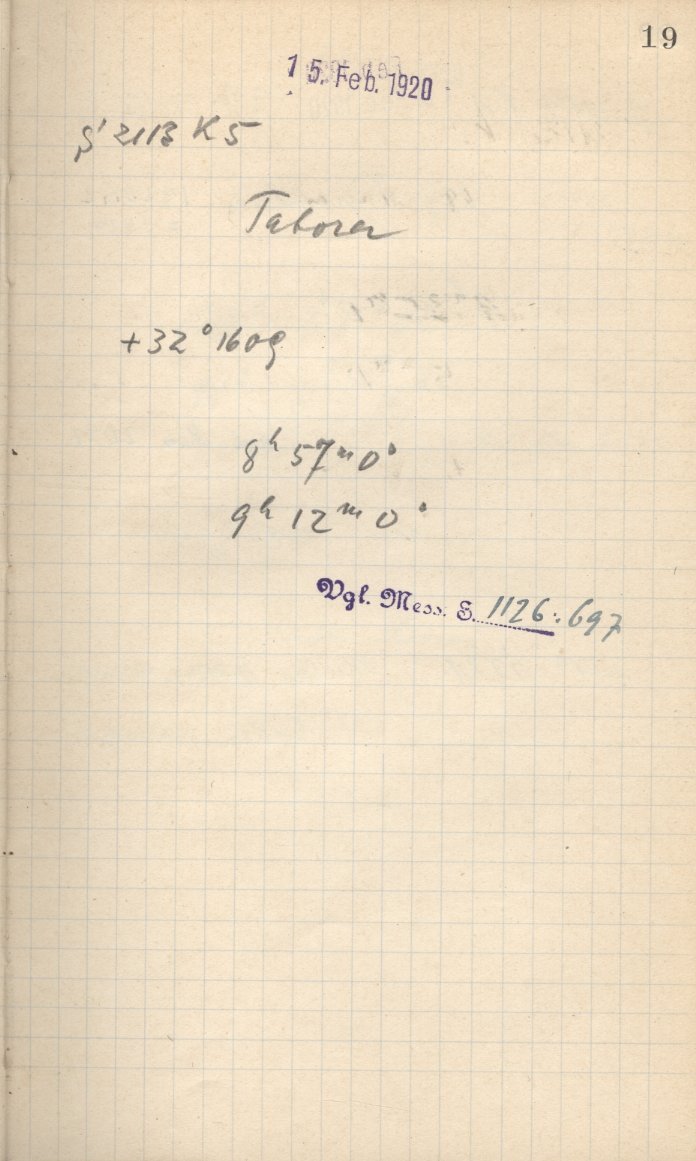 19
15. Feb. 1920
2113 K 5
Taborer
+32° 1609
8h 57m 0s
9h 12m 0s
Vgl. Mess. S. 1126:697